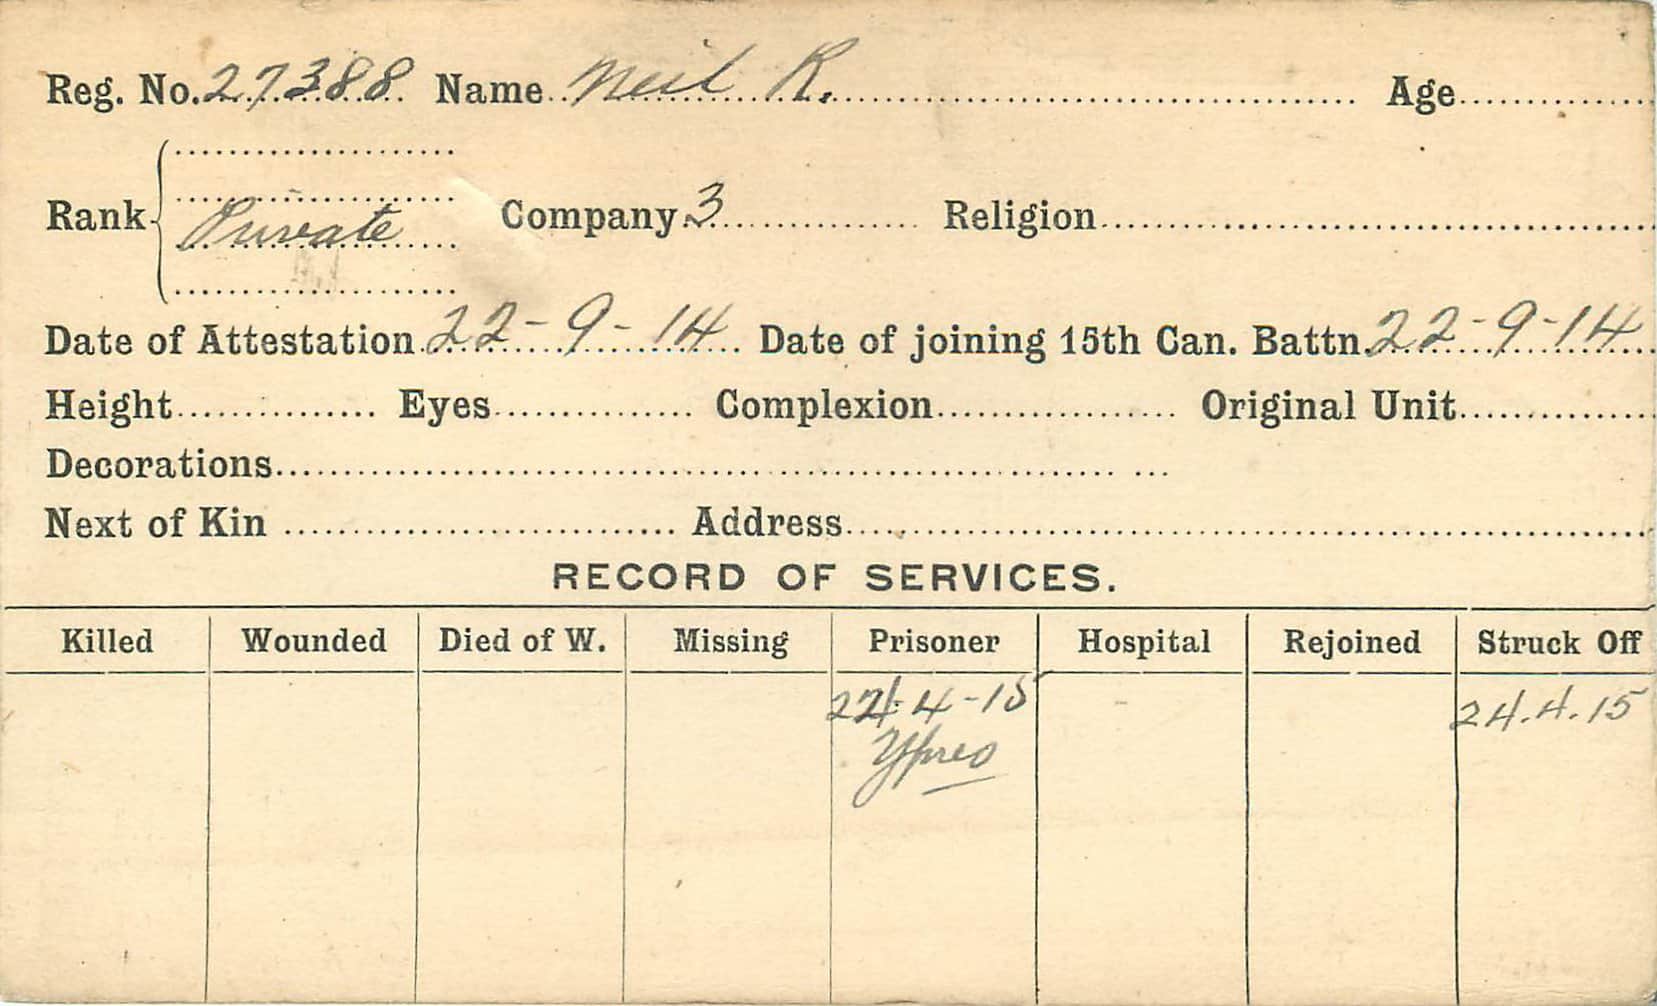 Reg. No. 27388 Name Neil R. Age
Rank Private Company 3 Religion
Date of Attestation 22-9-14 Date of joining 15th Can. Battn. 22-9-14
Height Eyes Complexion Original Unit
Decorations
Next of Kin Address
RECORD OF SERVICES.
Killed Wounded Died of W. Missing Prisoner Hospital Rejoined Struck Off
24-4-15 24.4.15
Ypres